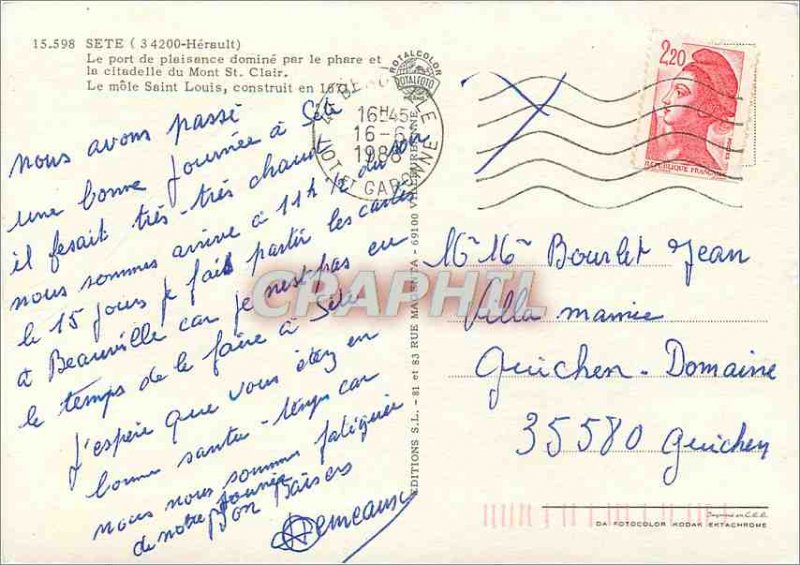 15.598 SETE (34200-Hérault)
Le port de plaisance dominé par le phare et
la citadelle du Mont St. Clair.
Le môle Saint Louis, construit en
nous avons passé
une bonne journée à Sète
il fesait très-très chaud
nous sommes arrive à 11h 1/2 du soir
le 15 jours je fait partir les cartes
a Beauville car je n'est pas eu
le temps de le faire à Sète
J'espère que vous étez en
bonne santé - temps car
nous nous sommes fatiguée
de notre journée
Bon Baisers
EDITIONS S.L. - 81 et 83 RUE MAGENTA - 69100 VILLEURBANNE
ROTALCOLOR
ROTALFOTO
16H45
16-6
1988
LOT ET GARONNE
2,20
REPUBLIQUE FRANÇAISE
Bourlet Jean
Villa mamie
Guichen-Domaine
35580 Guichen
CPAPHIL
Imprimé en C.E.E.
DA FOTOCOLOR KODAK EKTACHROME